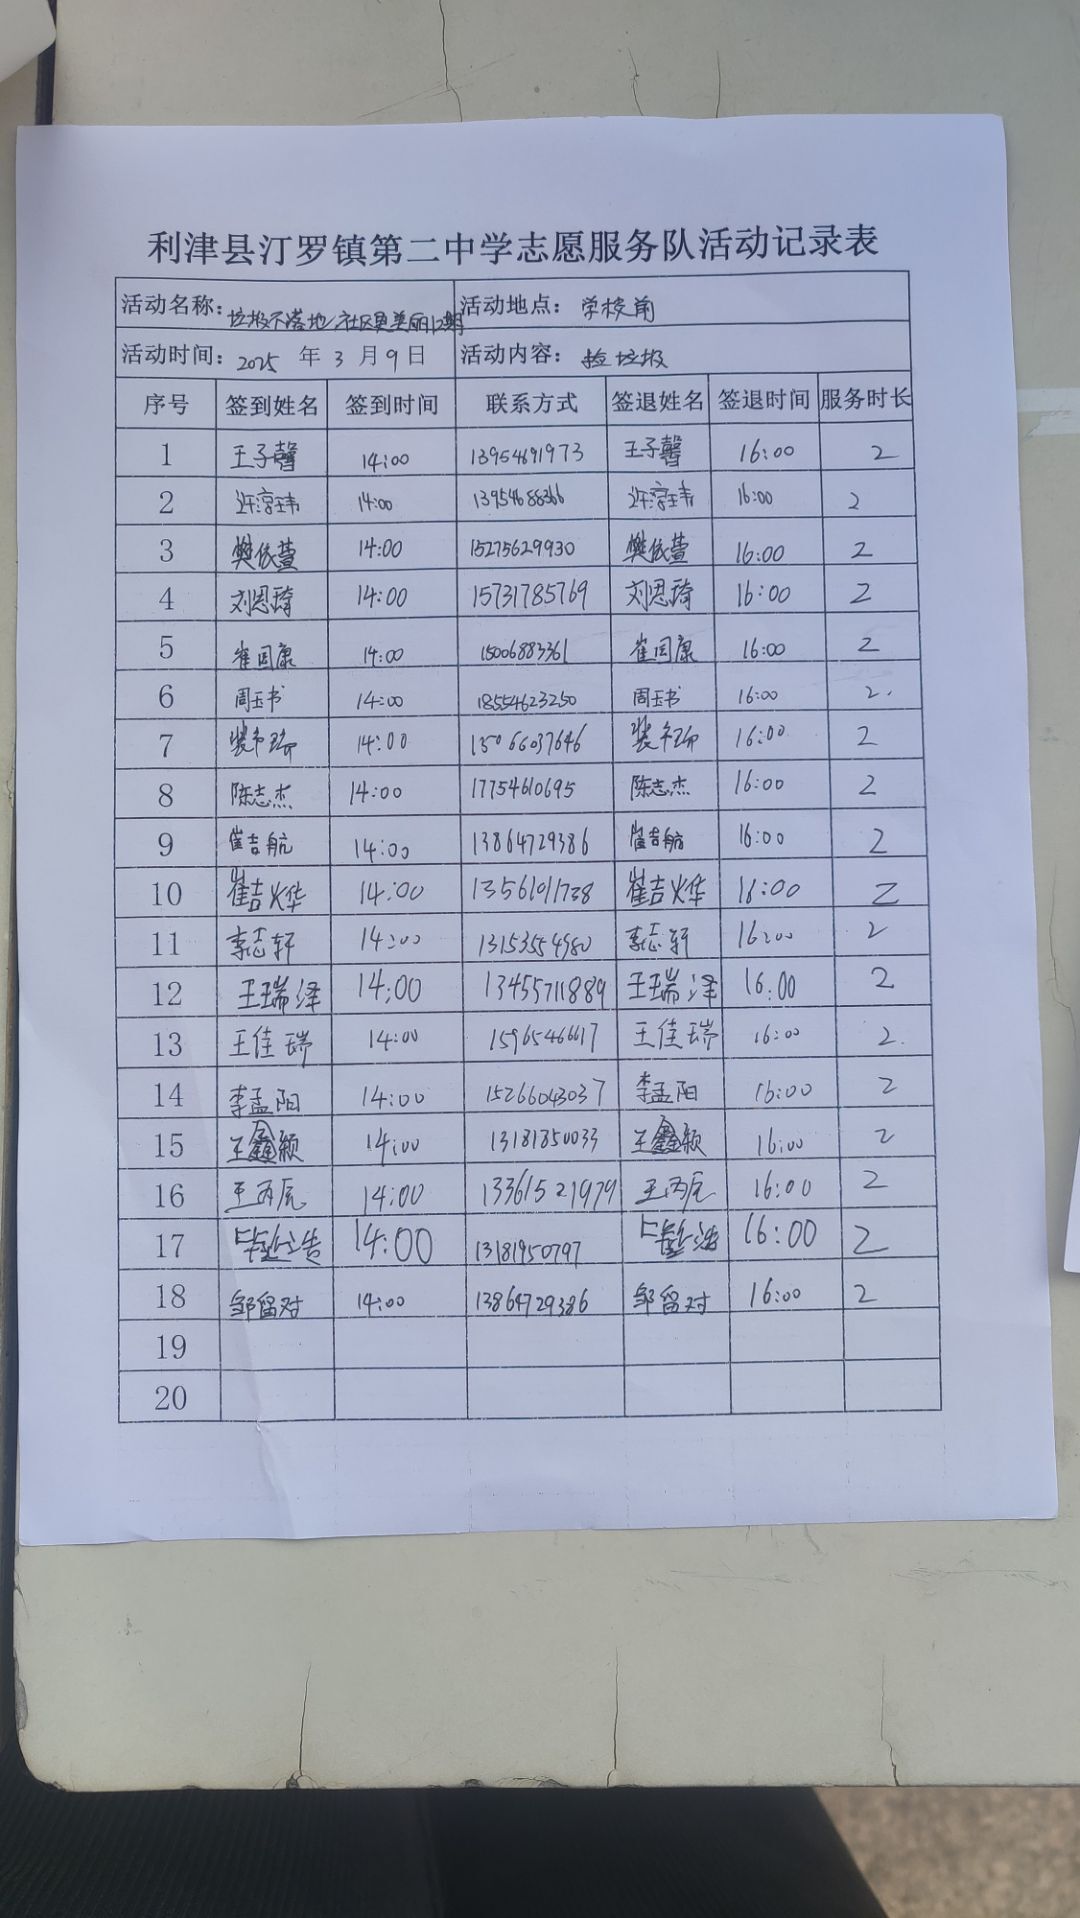 利津县汀罗镇第二中学志愿服务队活动记录表
活动名称：垃圾不落地 社区更美丽12期 活动地点：学校前
活动时间：2025 年 3 月 9 日 活动内容：捡垃圾
序号 签到姓名 签到时间 联系方式 签退姓名 签退时间 服务时长
1 王子馨 14:00 13954691973 王子馨 16:00 2
2 14:00 13954688366 16:00 2
3 樊依萱 14:00 15275629930 樊依萱 16:00 2
4 刘恩琦 14:00 15731785769 刘恩琦 16:00 2
5 崔国康 14:00 15006883361 崔国康 16:00 2
6 周玉书 14:00 18554623250 周玉书 16:00 2.
7 14:00 15066037646 16:00 2
8 陈志杰 14:00 17754610695 陈志杰 16:00 2
9 崔吉航 14:00 13864729386 崔吉航 16:00 2
10 崔吉烨 14:00 13561011738 崔吉烨 16:00 2
11 李志轩 14:00 13153554980 李志轩 16:00 2
12 王瑞泽 14:00 13455711889 王瑞泽 16:00 2
13 王佳瑞 14:00 15965466617 王佳瑞 16:00 2.
14 李孟阳 14:00 15266043037 李孟阳 16:00 2
15 王鑫颖 14:00 13181850033 王鑫颖 16:00 2
16 王丙辰 14:00 13361521979 王丙辰 16:00 2
17 14:00 13181950797 16:00 2
18 邹留对 14:00 13864729386 邹留对 16:00 2
19
20